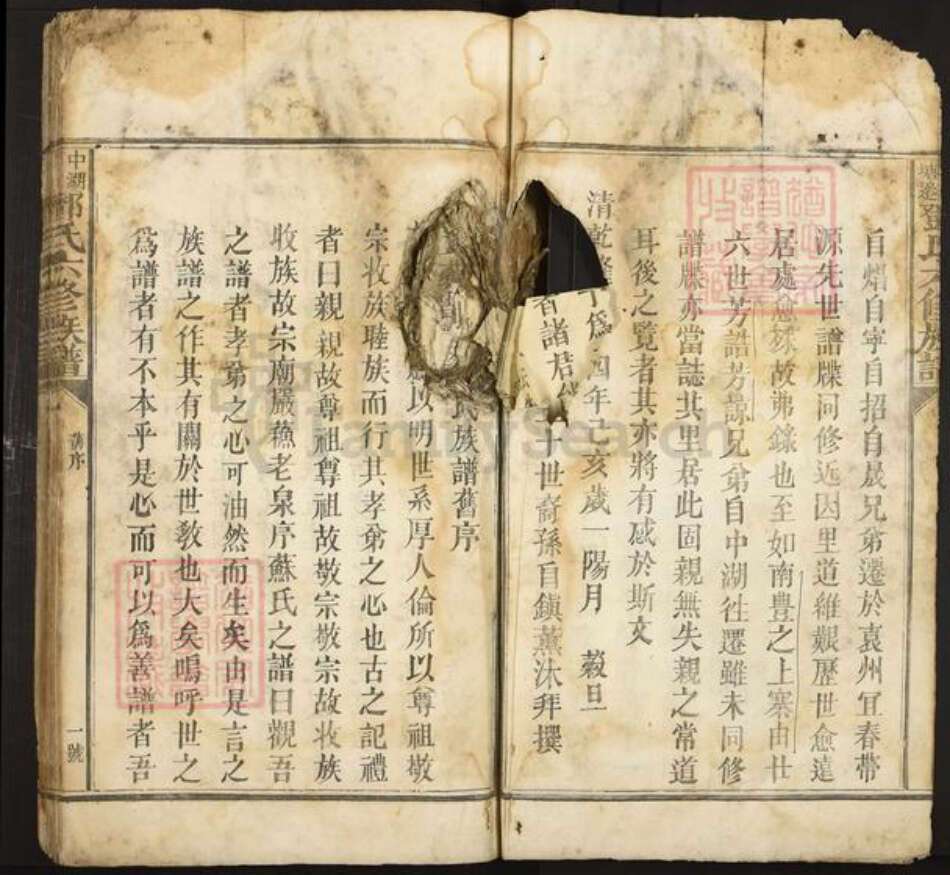 自熠自寧自招自晟兄弟遷於袁州宜春帶
源先世譜牒同修近因里道維艱歷世愈遠
居處愈秣故弗錄也至如南豐之上寨由廿
六世芳誥芳諒兄弟自中湖徃遷雖未同修
譜牒亦當誌其里居此固親無失親之常道
耳後之覽者其亦將有感於斯文
清乾 四年己亥歲一陽月 穀旦
十世裔孫自鎮薰沐拜撰
氏族譜舊序
以明世系厚人倫所以尊祖敬
宗收族睦族而行其孝弟之心也古之記禮
者曰親親故尊祖尊祖故敬宗敬宗故收族
收族故宗廟嚴蘓老泉序蘇氏之譜曰觀吾
之譜者孝弟之心可油然而生矣由是言之
族譜之作其有關於世教也大矣嗚呼世之
爲譜者有不本乎是心而可以爲善譜者吾
中湖鄧氏六修族譜
舊序
一號
FamilySearch